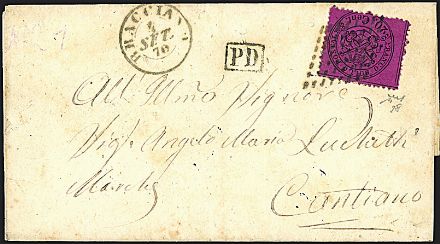 BRACCIANO
4
SET.
70
PD
All Illmo Signore
Sigr Angelo Maria
Marche
Cantiano